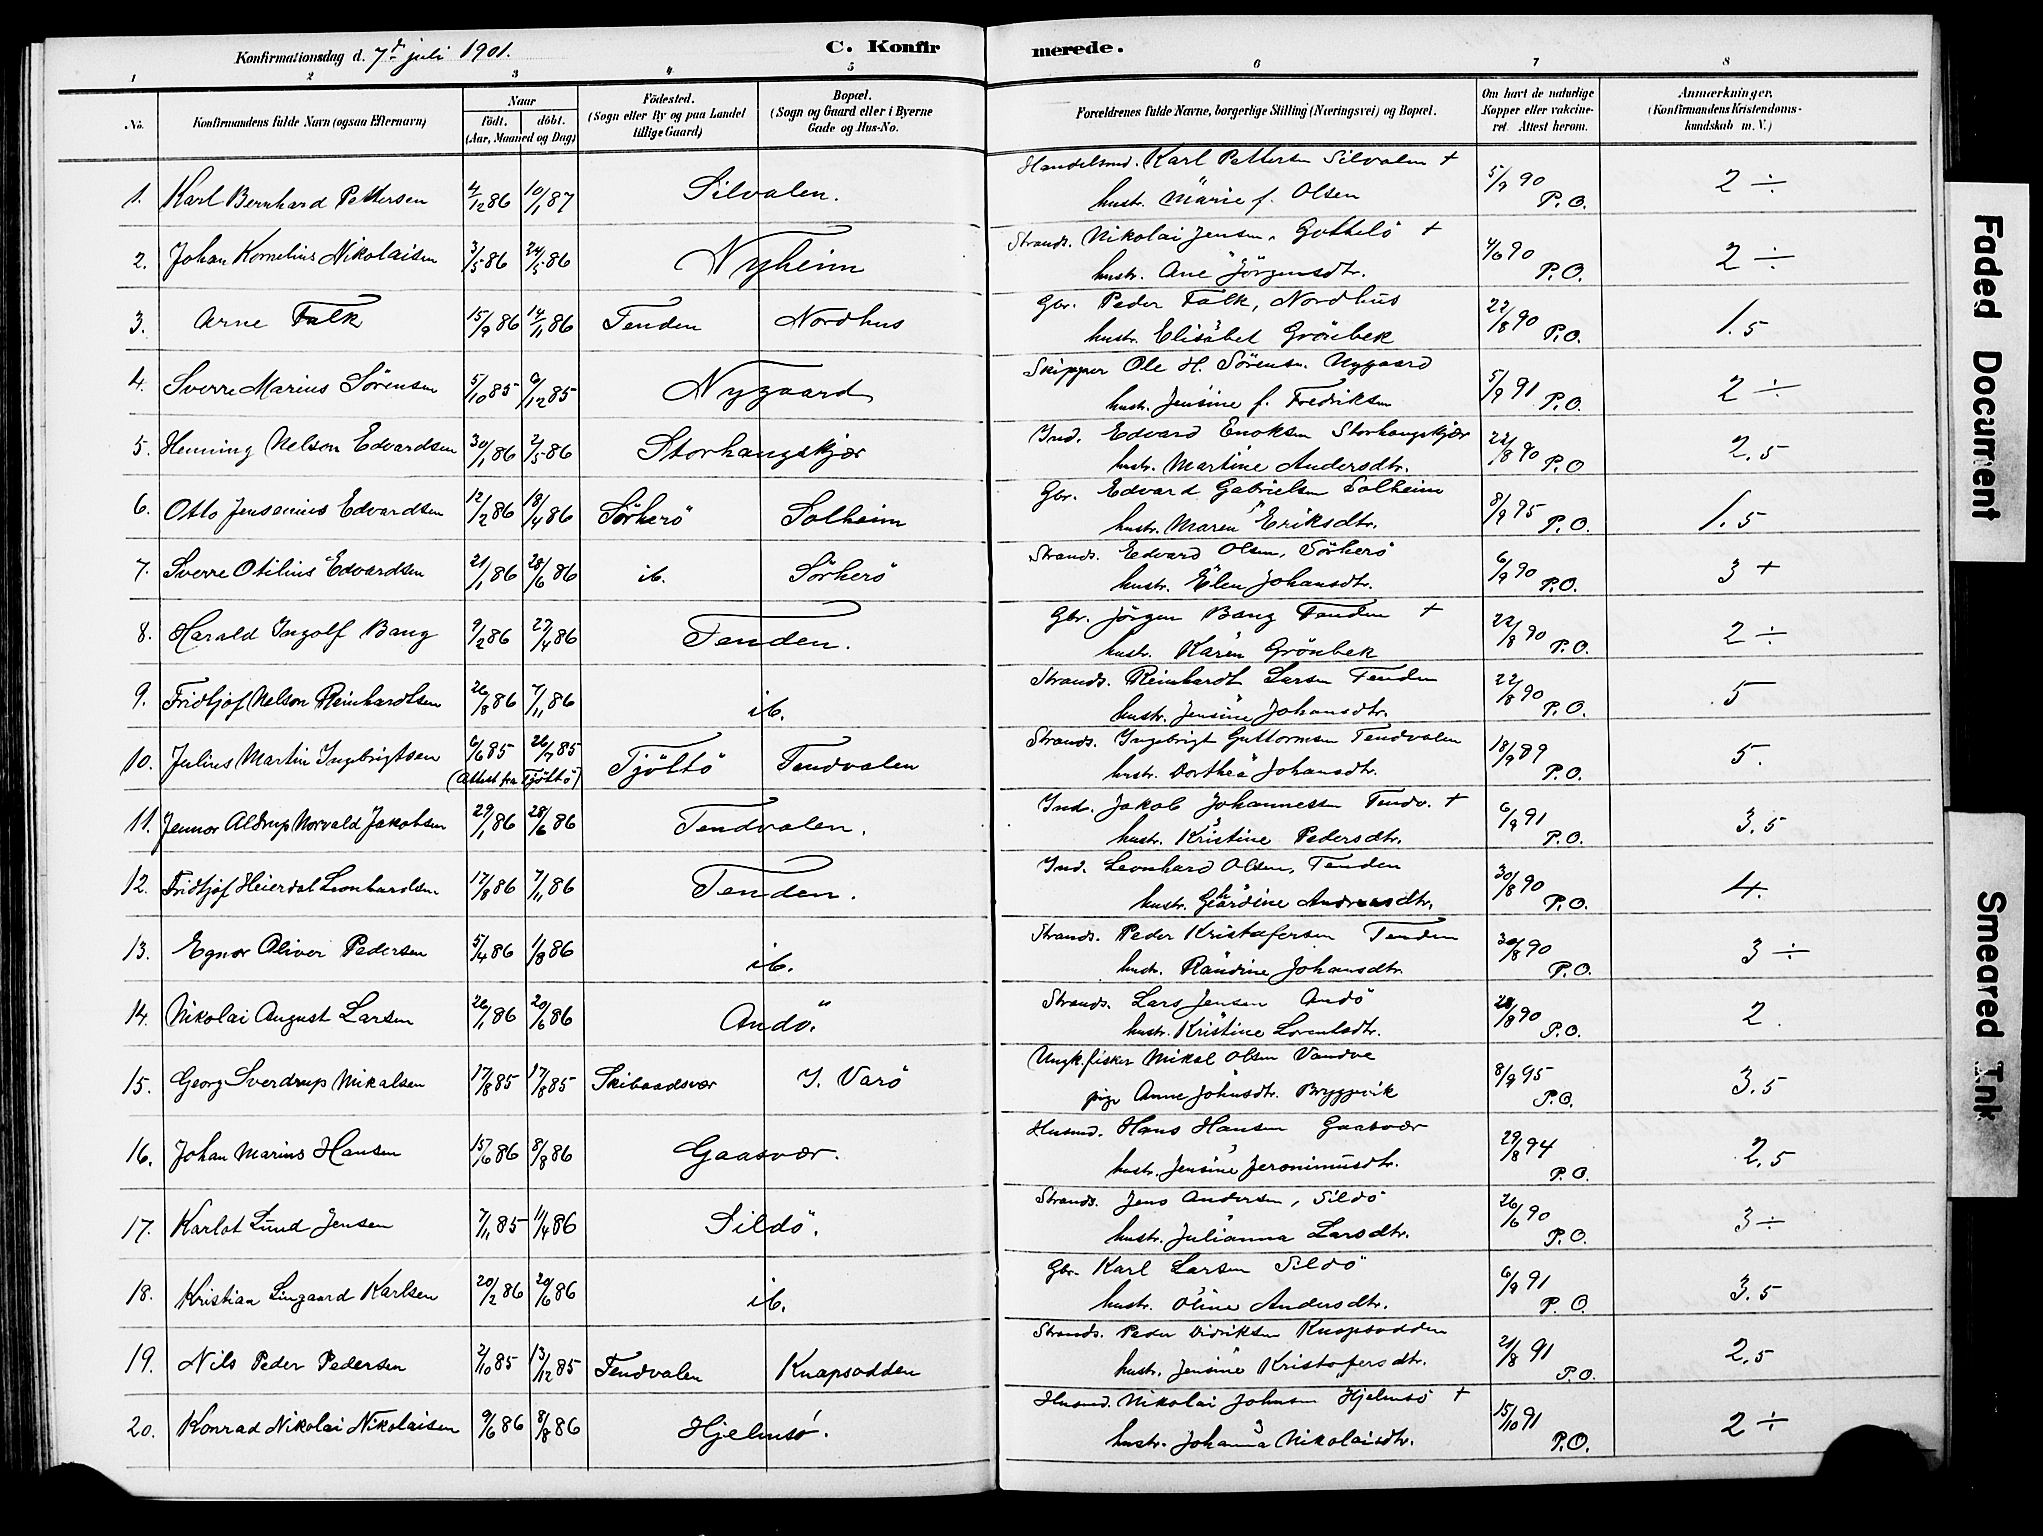 Konfirmationsdag d. 7de juli 1901.
C. Konfirmerede.
1 2 3 4 5 6 7 8
No.
Konfirmandens fulde Navn (ogsaa Efternavn)
Naar
födt. döbt.
(Aar, Maaned og Dag)
Födested.
(Sogn eller By og paa Landet
tillige Gaard)
Bopæl.
(Sogn og Gaard eller i Byerne
Gade og Hus-No.
Forældrenes fulde Navne, borgerlige Stilling (Næringsvei) og Bopæl.
Om havt de naturlige
Kopper eller vakcine-
ret. Attest herom.
Anmærkninger,
(Konfirmandens Kristendoms-
kundskab m. V.)
1. Karl Bernhard Pettersen 4/12 86 10/1 87 Silvalen. Handelsmd. Karl Pettersen Silvalen +
hustr. Marie f. Olsen 5/9 90 P.O. 2 ÷
2. Johan Kornelius Nikolaisen 3/5 86 24/5 86 Nyheim Strands. Nikolai Jensen, Gottelö +
hustr. Ane Jörgensdtr. 4/6 90 P.O. 2 ÷
3. Arne Falk 15/9 86 14/11 86 Tenden Nordhus Gbr. Peder Falk, Nordhus
hustr. Elisabet Grönbek 22/8 90 P.O. 1.5
4. Sverre Marius Sörensen 5/10 85 6/12 85 Nygaard Skipper Ole H. Sörensen. Nygaard
hustr. Jensine f. Fredriksen 5/9 91 P.O. 2 ÷
5. Henning Nelson Edvardsen 30/1 86 2/5 86 Storhaugskjær Ind. Edvard Enoksen Storhaugskjær
hustr. Martine Andersdtr. 22/8 90 P.O 2,5
6. Otto Jensenius Edvardsen 12/2 86 18/4 86 Sörherö Solheim Gbr. Edvard Gabrielsen Solheim
hustr. Maren Eriksdtr. 8/9 95 P.O. 1.5
7. Sverre Otilius Edvardsen 21/1 86 28/6 86 ib. Sörherö Strands. Edvard Olsen, Sörherö
hustr. Elen Johansdtr. 6/9 90 P.O. 3 +
8. Harald Ingolf Bang 9/2 86 27/4 86 Tenden. Gbr. Jörgen Bang Tenden +
hustr. Karen Grönbek 22/8 90 P.O. 2 ÷
9. Fridtjof Nelson Reinhardtsen 26/8 86 7/11 86 ib. Strands. Reinhardt Larsen Tenden
hustr. Jensine Johansdtr. 22/8 90 P.O. 5
10. Julius Martin Ingebrigtsen 6/6 85 26/7 85 Tjöttö Tendvalen Strands. Ingebrigt Guttormsen Tendvalen
(Attest fra Tjöttö) hustr. Dorthea Johansdtr. 18/9 89 P.O. 5.
11. Jennor Aldrup Norvald Jakobsen 29/1 86 28/6 86 Tendvalen. Ind. Jakob Johannessen Tendv. +
hustr. Kristine Pedersdtr. 6/9 91 P.O. 3,5
12. Fridtjof Heierdal Leonhardsen 17/8 86 7/11 86 Tenden. Ind. Leonhard Olsen, Tenden
hustr. Andreasdtr. 30/8 90 P.O. 4.
13. Egnor Oliver Pedersen 5/4 86 1/8 86 ib. Strands. Peder Kristofersen Tenden
hustr. Randine Johansdtr. 30/8 90 P.O. 3 ÷
14. Nikolai August Larsen 26/1 86 20/6 86 Andö. Strands. Lars Jensen Andö
hustr. Kristine Lorentsdtr. 28/8 90 P.O. 2.
15. Georg Sverdrup Mikalsen 17/8 85 17/8 85 Skibaadsvær I. Varö Ungk. fisker Mikal Olsen Vandve
pige Anne Johnsdtr. Bryggevik 8/9 95 P.O. 3.5
16. Johan Marius Hansen 15/6 86 8/8 86 Gaasvær. Husmd. Hans Hansen Gaasvær
hustr. Jensine Jeronimusdtr. 29/8 94 P.O. 2,5
17. Karlot Lund Jensen 7/11 85 11/4 86 Sildö. Strands. Jens Andersen, Sildö
hustr. Julianna Larsdtr. 26/6 90 P.O. 3 ÷
18. Kristian Lingaard Karlsen 20/2 86 20/6 86 ib. Gbr. Karl Larsen Sildö
hustr. Oline Andersdtr. 6/9 91 P.O. 3.5
19. Nils Peder Pedersen 2/10 85 13/12 85 Tendvalen Knapsodden Strands. Peder Didriksen Knapsodden
hustr. Jensine Kristofersdtr. 21/8 91 P.O. 2,5
20. Konrad Nikolai Nikolaisen 9/6 86 8/8 86 Hjelmsö. Husmd. Nikolai Johnsen Hjelmsö +
hustr. Johanna Nikolaisdtr. 15/10 91 P.O. 2 ÷
Faded Document
Smeared Ink